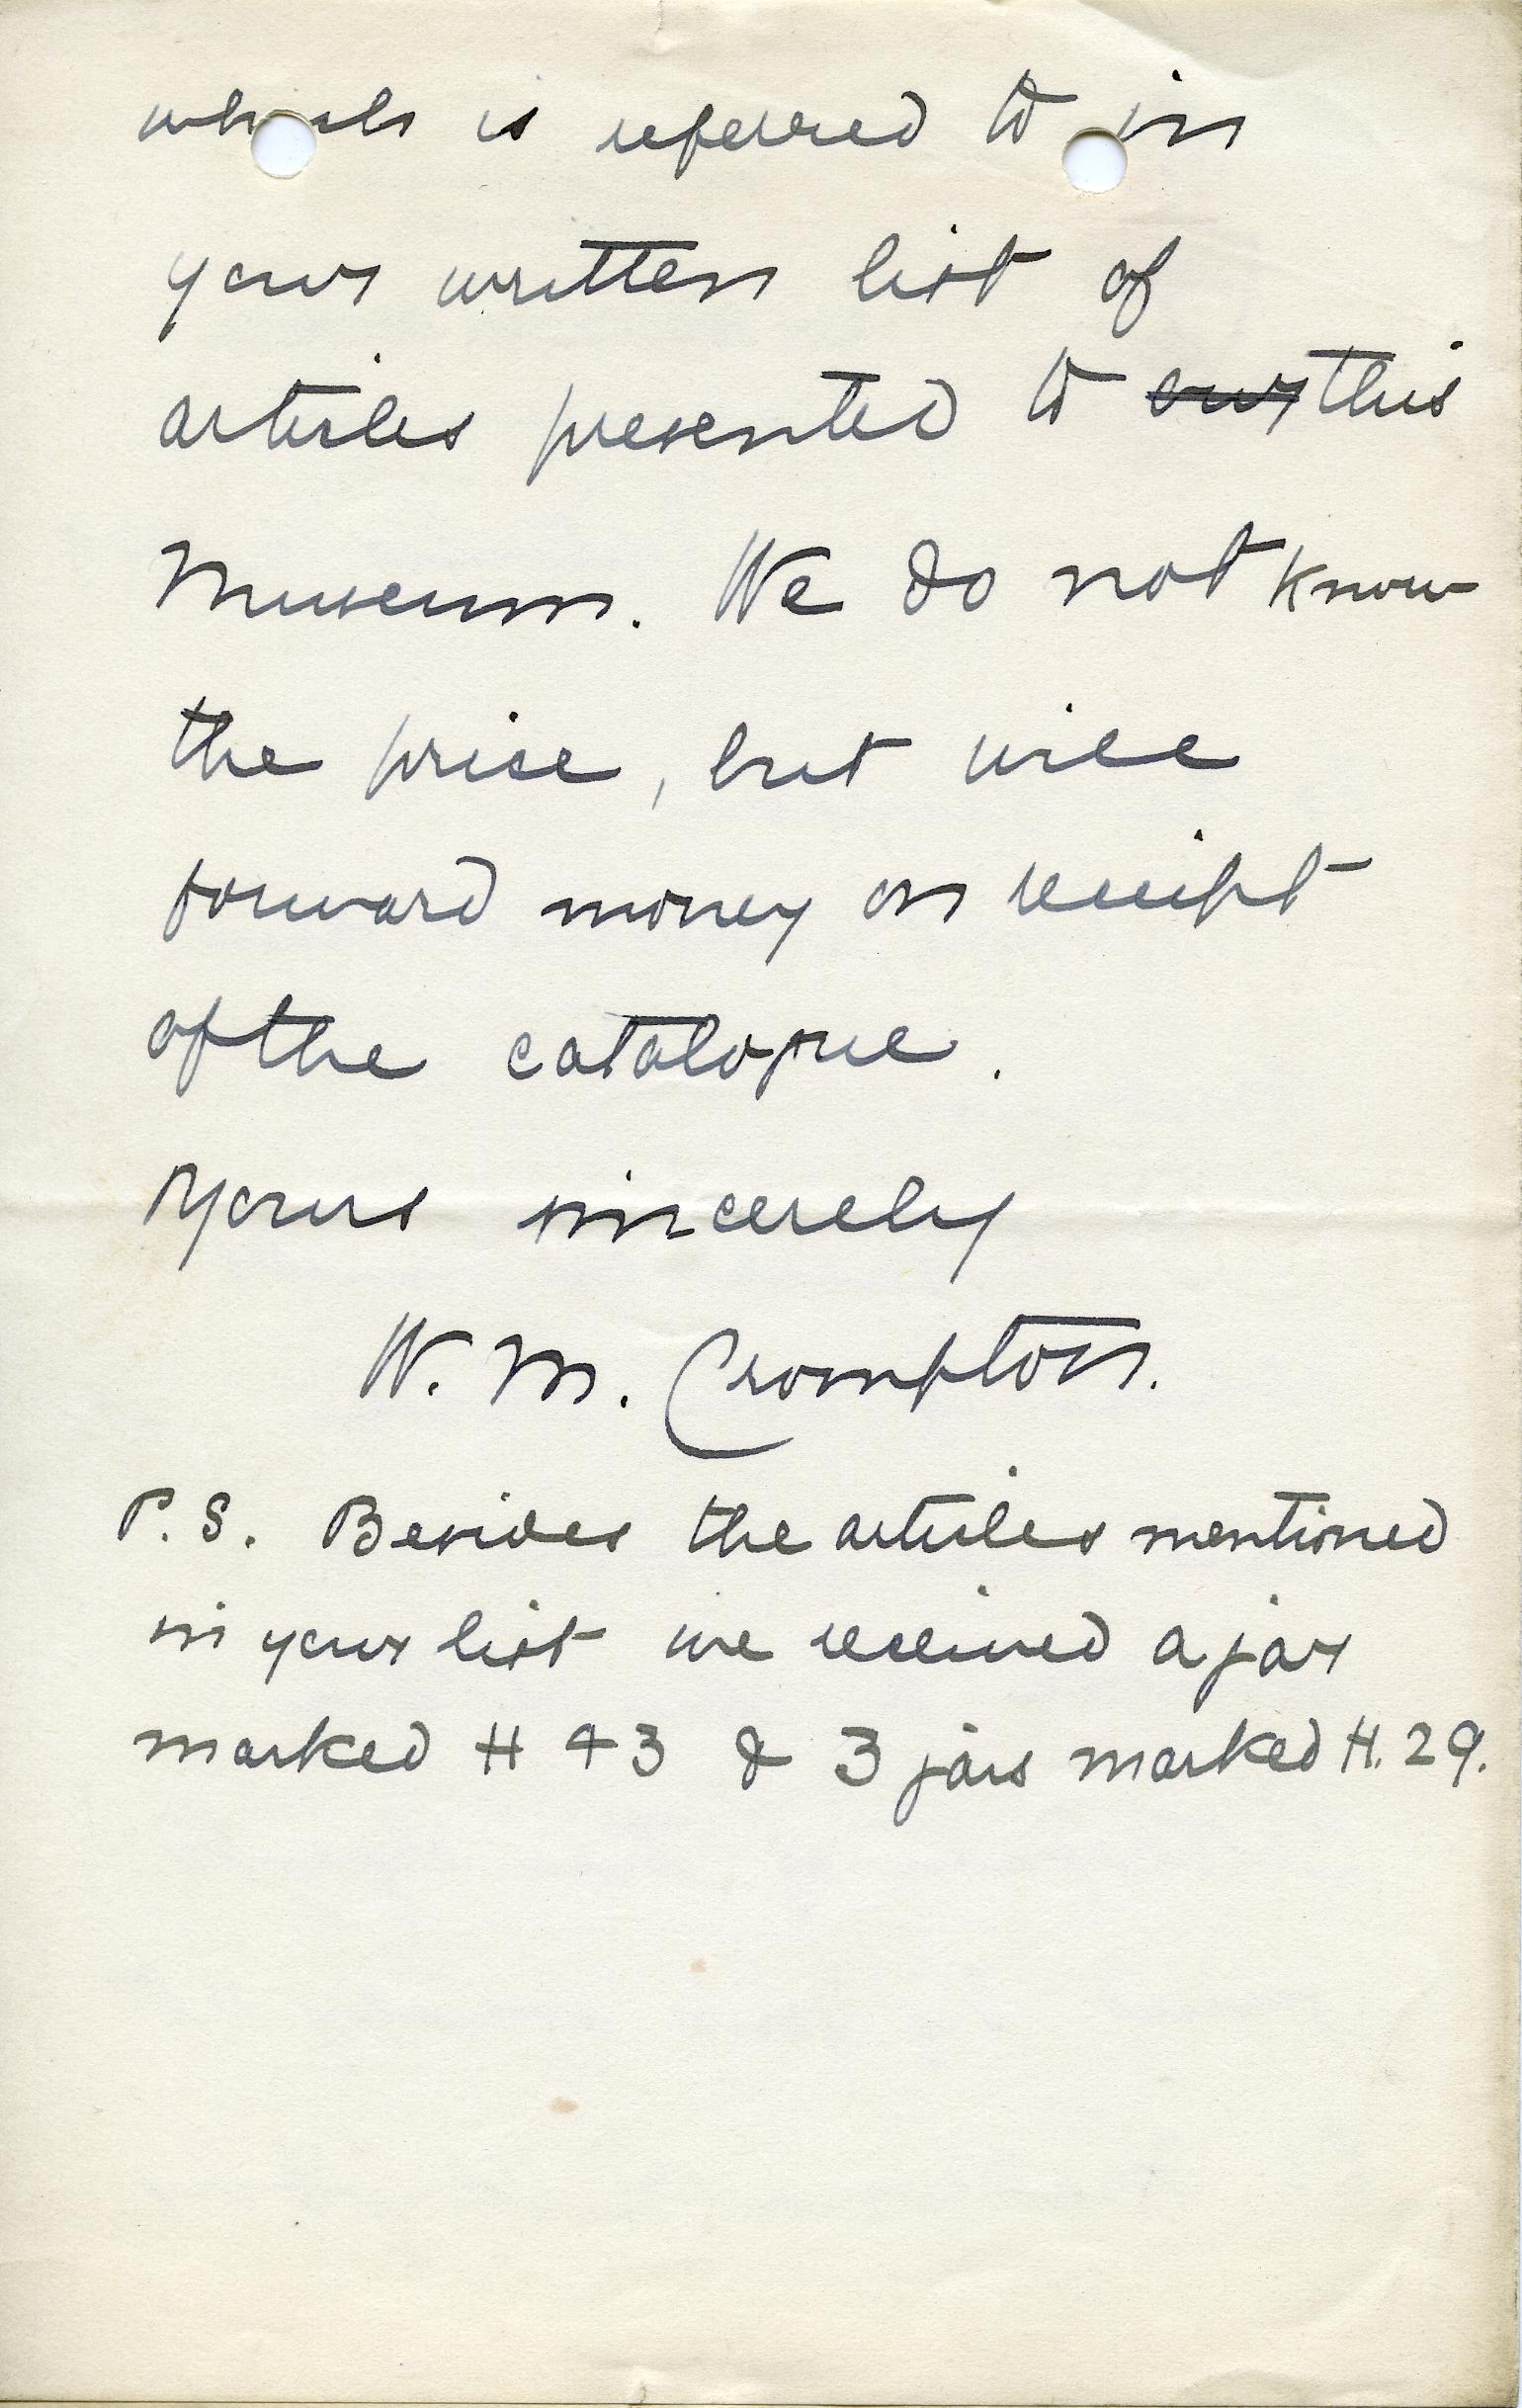 which is referred to in
your written list of
articles presented to our this
Museum. We do not know
the price, but will
forward money on receipt
of the catalogue.
Yours sincerely
W. M. Crompton.
P.S. Besides the articles mentioned
in your list we received a jar
marked H 43 & 3 jars marked H. 29.